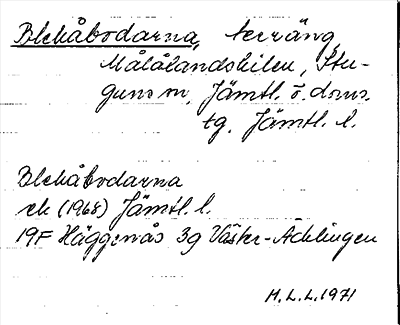 Blekåbodarna, terräng,
Målålandskilen, Stu-
guns sn, Jämtl. ö. doms.
tg. Jämtl. l.
Blekåbodarna
ek (1968) Jämtl. l.
19F Häggenås 3g Väster-Acklingen
H.L.L. 1971